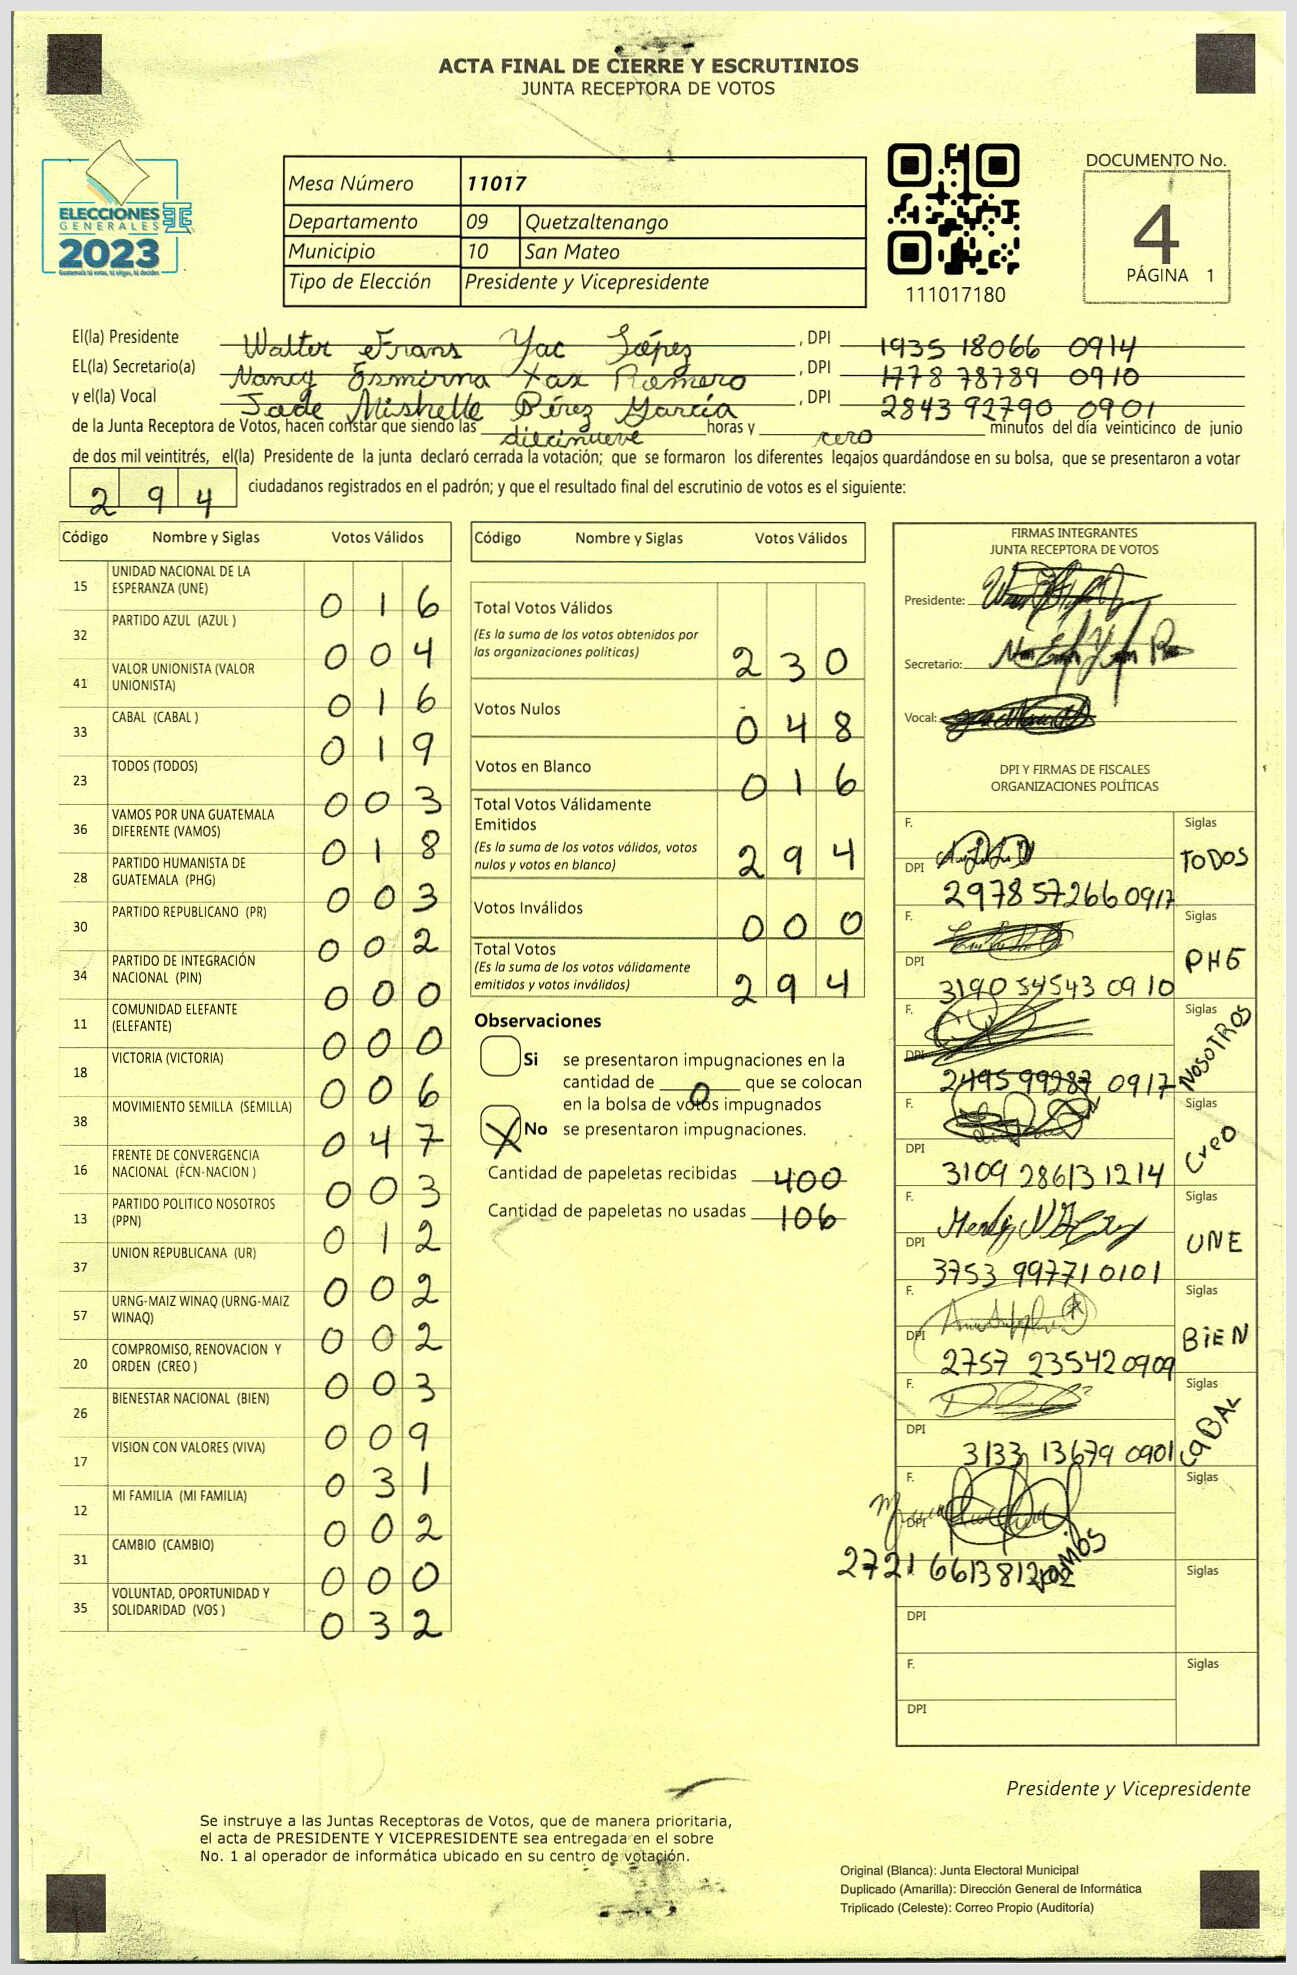 ACTA FINAL DE CIERRE Y ESCRUTINIOS
JUNTA RECEPTORA DE VOTOS
ELECCIONES
GENERALES
2023
Guatemala tú votas, tú eliges, tú decides
Mesa Número 11017
Departamento 09 Quetzaltenango
Municipio 10 San Mateo
Tipo de Elección Presidente y Vicepresidente
111017180
DOCUMENTO No.
4
PÁGINA 1
El(la) Presidente Walter Frans Yac López, DPI 1935 18066 0914
EL(la) Secretario(a) Nancy Esmirna Xax Romero, DPI 1778 78789 0910
y el(la) Vocal Jade Mishelle Pérez García, DPI 2843 92790 0901
de la Junta Receptora de Votos, hacen constar que siendo las diecinueve horas y cero minutos del día veinticinco de junio
de dos mil veintitrés, el(la) Presidente de la junta declaró cerrada la votación; que se formaron los diferentes legajos guardándose en su bolsa, que se presentaron a votar
294 ciudadanos registrados en el padrón; y que el resultado final del escrutinio de votos es el siguiente:
Código Nombre y Siglas Votos Válidos
15 UNIDAD NACIONAL DE LA ESPERANZA (UNE) 016
32 PARTIDO AZUL (AZUL ) 004
41 VALOR UNIONISTA (VALOR UNIONISTA) 016
33 CABAL (CABAL ) 019
23 TODOS (TODOS) 003
36 VAMOS POR UNA GUATEMALA DIFERENTE (VAMOS) 018
28 PARTIDO HUMANISTA DE GUATEMALA (PHG) 003
30 PARTIDO REPUBLICANO (PR) 002
34 PARTIDO DE INTEGRACIÓN NACIONAL (PIN) 000
11 COMUNIDAD ELEFANTE (ELEFANTE) 000
18 VICTORIA (VICTORIA) 006
38 MOVIMIENTO SEMILLA (SEMILLA) 047
16 FRENTE DE CONVERGENCIA NACIONAL (FCN-NACION ) 003
13 PARTIDO POLITICO NOSOTROS (PPN) 012
37 UNION REPUBLICANA (UR) 002
57 URNG-MAIZ WINAQ (URNG-MAIZ WINAQ) 002
20 COMPROMISO, RENOVACION Y ORDEN (CREO ) 003
26 BIENESTAR NACIONAL (BIEN) 009
17 VISION CON VALORES (VIVA) 031
12 MI FAMILIA (MI FAMILIA) 002
31 CAMBIO (CAMBIO) 000
35 VOLUNTAD, OPORTUNIDAD Y SOLIDARIDAD (VOS ) 032
Código Nombre y Siglas Votos Válidos
Total Votos Válidos 230
(Es la suma de los votos obtenidos por
las organizaciones políticas)
Votos Nulos 048
Votos en Blanco 016
Total Votos Válidamente
Emitidos 294
(Es la suma de los votos válidos, votos
nulos y votos en blanco)
Votos Inválidos 000
Total Votos 294
(Es la suma de los votos válidamente
emitidos y votos inválidos)
Observaciones
Si se presentaron impugnaciones en la
cantidad de 0 que se colocan
en la bolsa de votos impugnados
X No se presentaron impugnaciones.
Cantidad de papeletas recibidas 400
Cantidad de papeletas no usadas 106
FIRMAS INTEGRANTES
JUNTA RECEPTORA DE VOTOS
Presidente:
Secretario:
Vocal:
DPI Y FIRMAS DE FISCALES
ORGANIZACIONES POLÍTICAS
F. Siglas TODOS
DPI 2978 57266 0917
F. Siglas PHG
DPI 3190 54543 0910
F. Siglas NOSOTROS
DPI 2495 99287 0917
F. Siglas Creo
DPI 3109 28613 1214
F. Siglas UNE
DPI 3753 99771 0101
F. Siglas BiEN
DPI 2757 23542 0909
F. Siglas CABAL
DPI 3133 13679 0901
F. Siglas VAMOS
DPI
Siglas
DPI
F. Siglas
DPI
Presidente y Vicepresidente
Se instruye a las Juntas Receptoras de Votos, que de manera prioritaria,
el acta de PRESIDENTE Y VICEPRESIDENTE sea entregada en el sobre
No. 1 al operador de informática ubicado en su centro de votación.
Original (Blanca): Junta Electoral Municipal
Duplicado (Amarilla): Dirección General de Informática
Triplicado (Celeste): Correo Propio (Auditoría)